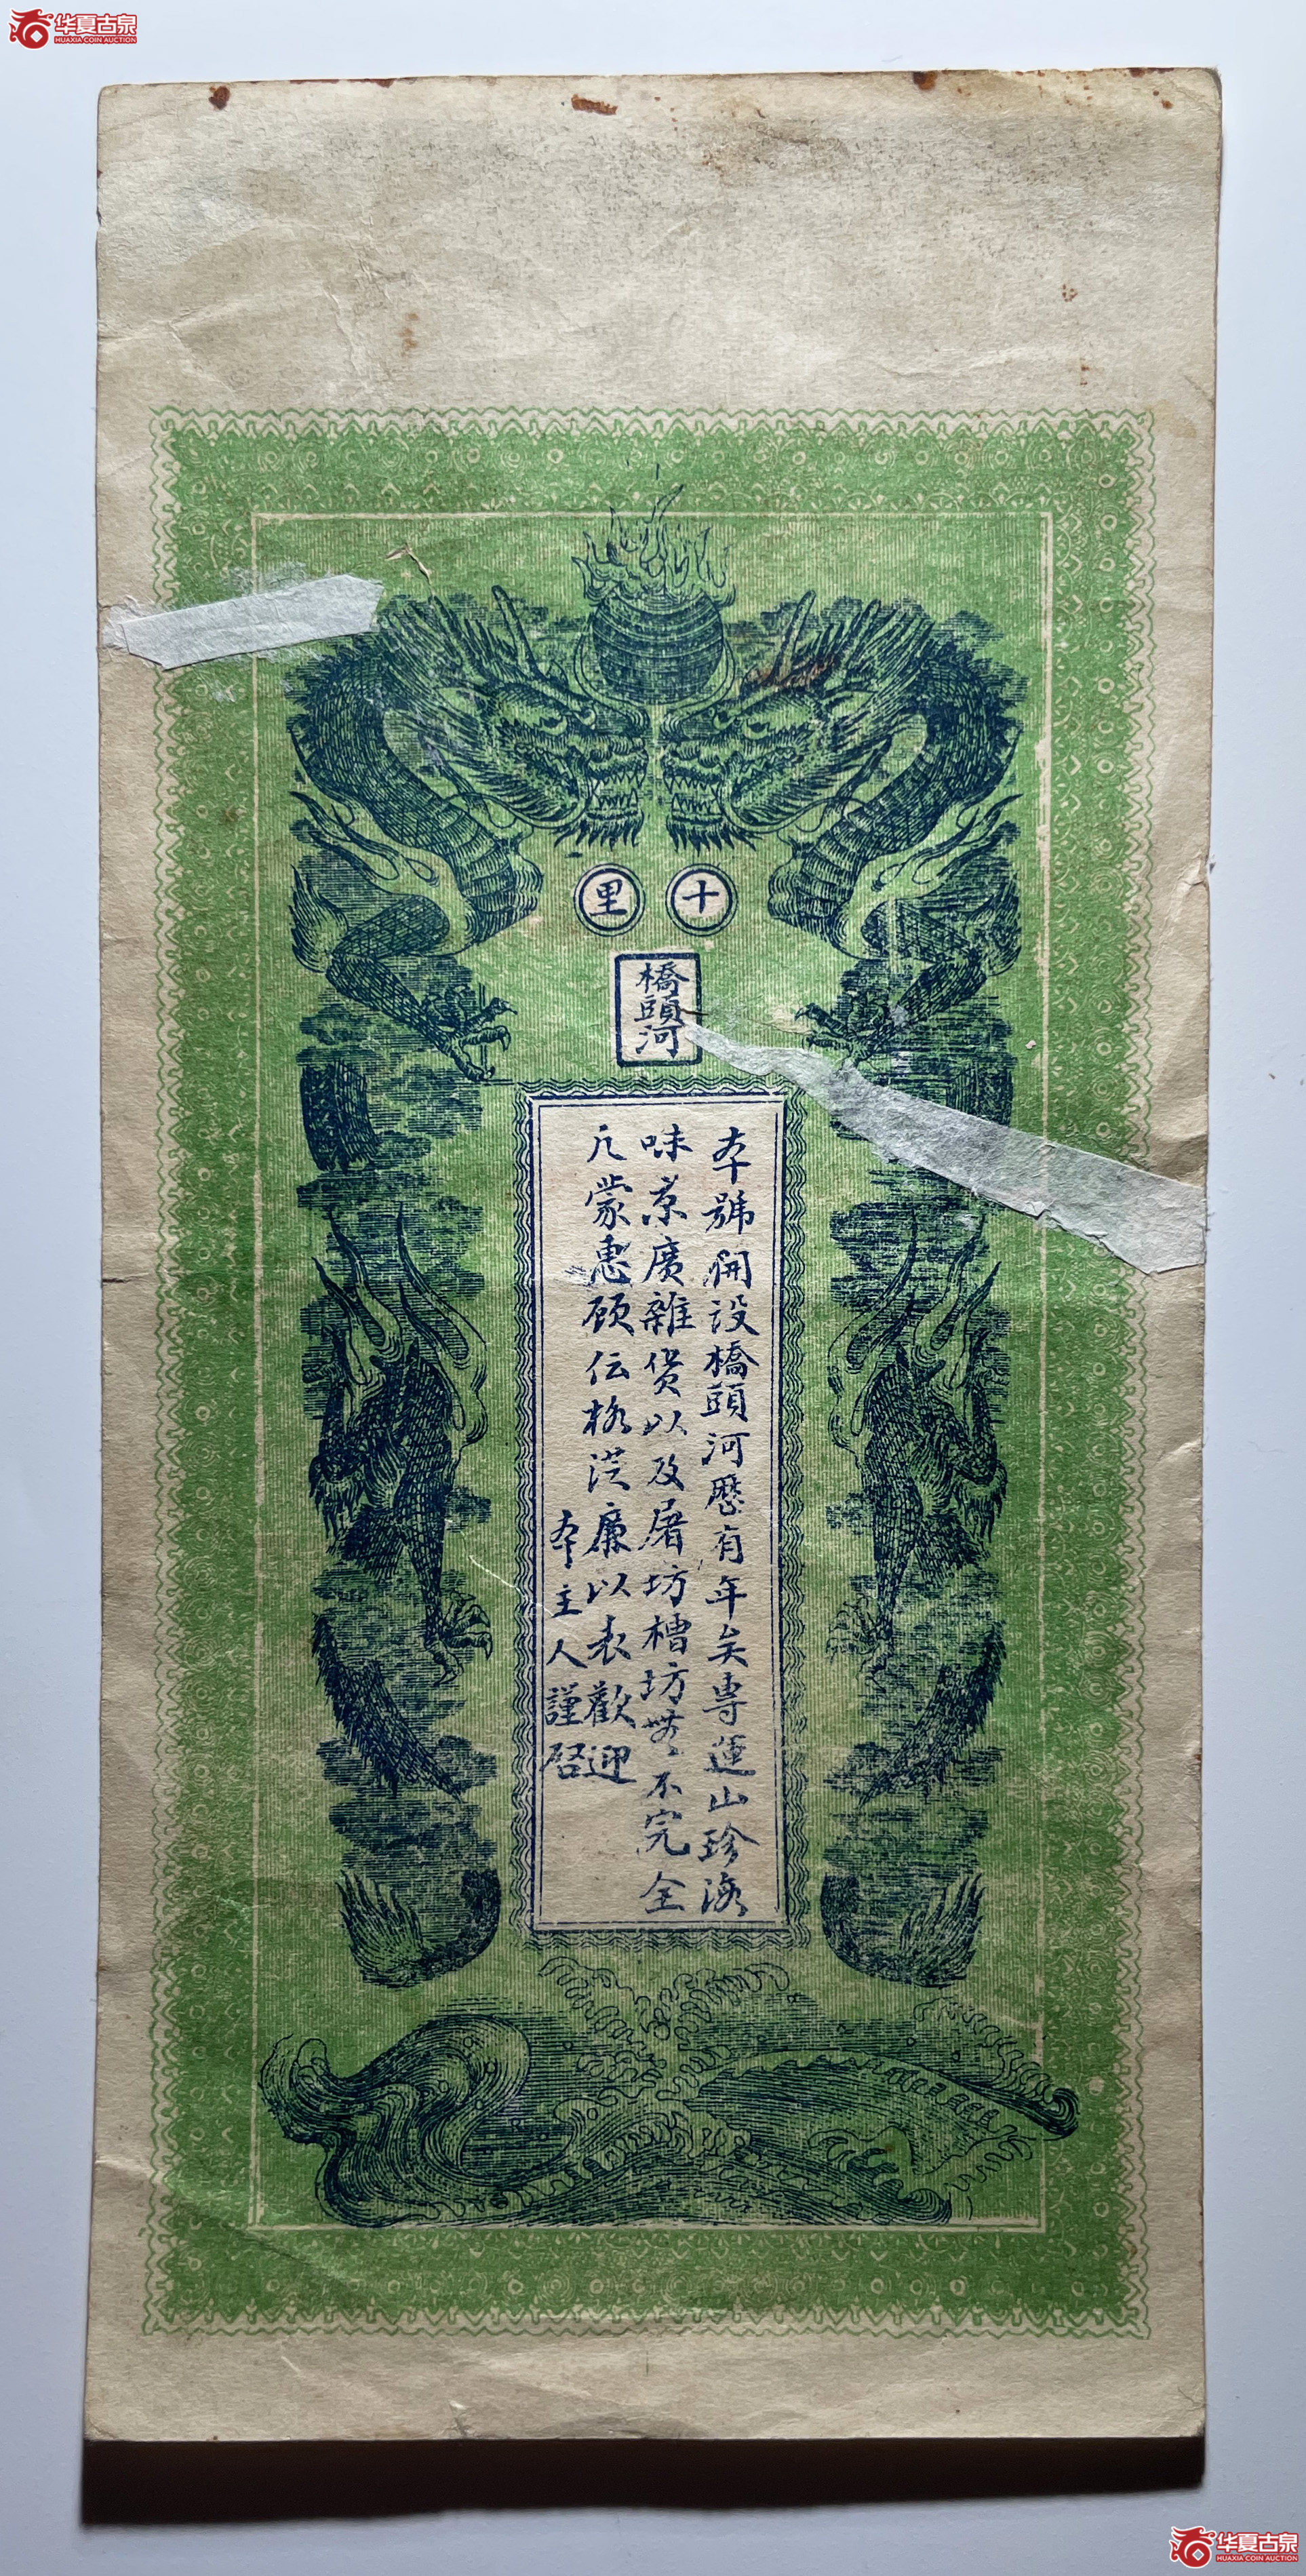 华夏古泉
HUAXIA COIN AUCTION
十里
橋頭河
本號開設橋頭河歷有年矣專運山珍海
味京廣雜货以及屠坊槽坊無不完全
凡蒙惠顾伝格従廉以表歡迎
本主人謹啓
华夏古泉
HUAXIA COIN AUCTION